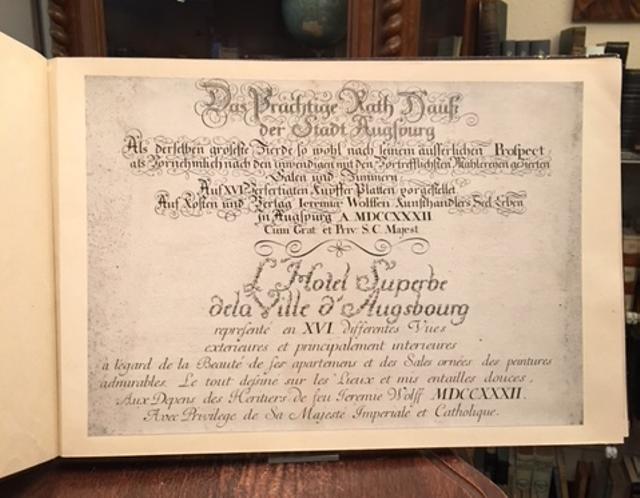 Das Prächtige Rath Hauß
der Stadt Augspurg
Als derselben groseste Zierde so wohl nach seinem äusserlichen Prospect,
als Vornehmlich nach den inwendigen mit den Vortrefflichsten Mahlereyen gezierten
Sälen und Zimmern
Auf XVI Verfertigten Kupffer Platten vorgestellet
Auf Kosten und Verlag Ieremiæ Wolffen Kunsthändlers Seel. Erben
in Augspurg A. MDCCXXXII
Cum Grat et Priv. S. C. Majest
L'Hotel Superbe
dela Ville d'Augsbourg
representé en XVI differentes Vues
exterieures et principalement interieures
a légard de la Beauté de ses apartemens et des Sales ornées des peintures
admirables. Le tout desiné sur les Lieux et mis entailles douces,
Aux Depens des Heritiers de feu Ieremie Wolff MDCCXXXII.
Avec Privilege de Sa Majesté Imperiale et Catholique.